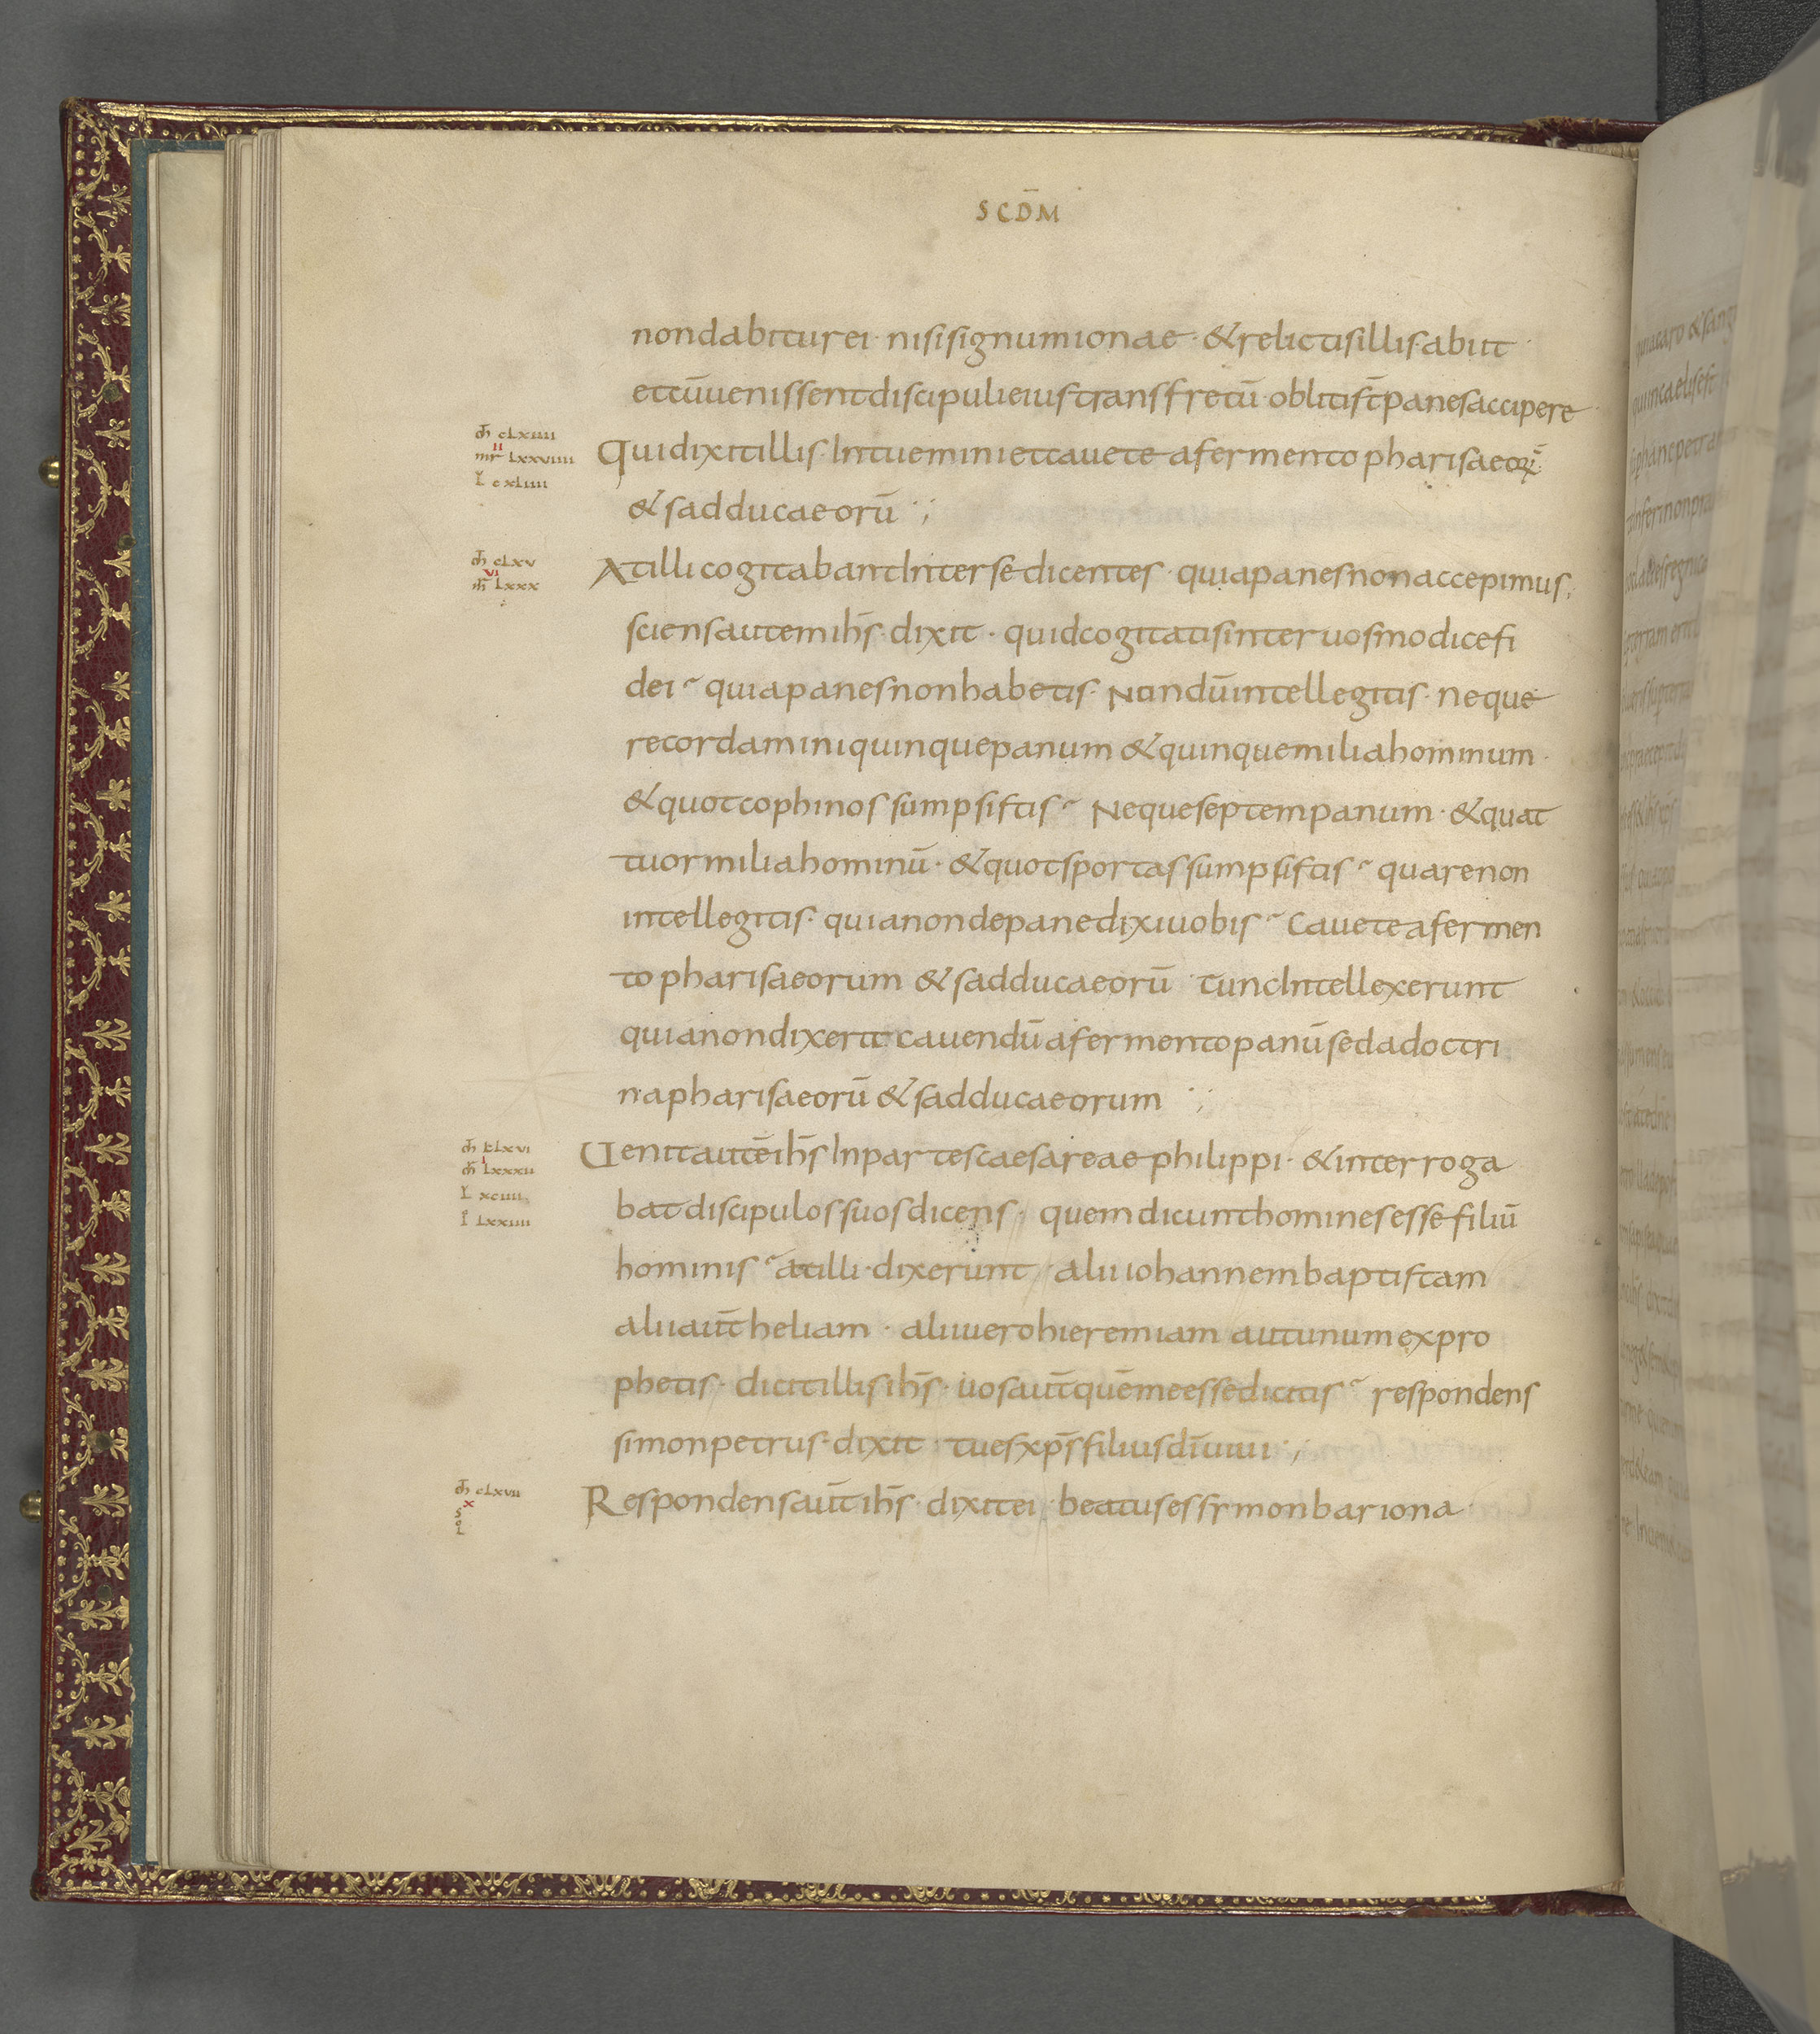 SCD̄M
non dabitur ei · nisi signum ionae · & relictis illis · abiit ·
et cū uenissent discipuli eius trans fretū · obliti s̄t panes accipere ·
m̄ cLxiiii
II
mr̄ Lxxviiii
L̄ cxLiiii
Qui dixit illis · Intuemini et cauete a fermento pharisaeoꝝ
& sadducaeorū ·,;
m̄ cLxv
VI
m̄ Lxxx
At illi cogitabant Inter se dicentes · quia panes non accepimus;
sciens autem ih̄s · dixit · quid cogitatis inter uos modice fi
dei · quia panes non habetis · Nondū intellegitis · neque
recordamini quinque panum & quinque milia hominum ·
& quot cophinos sumpsistis · Neque septem panum · & quat
tuor milia hominū · & quot sportas sumpsistis · quare non
intellegitis · quia non de pane dixi uobis · Cauete a fermen
to pharisaeorum & sadducaeorū · tunc Intellexerunt
quia non dixerit cauendū a fermento panū sed a doctri
na pharisaeorū & sadducaeorum ·,;
m̄ cLxvi
I
m̄ Lxxxii
L̄ xciiii
Ī Lxxiiii
Uenit autē ih̄s In partes caesareae philippi · & interroga
bat discipulos suos dicens · quem dicunt homines esse filiū
hominis · at illi · dixerunt · alii iohannem baptistam
alii aut̄ heliam · alii uero hieremiam aut unum ex pro
phetis · dicit illis ih̄s · uos aut̄ quē me esse dicitis · respondens
simon petrus · dixit · tu es xp̄s filius dī uiui ·,;
m̄ cLxvii
X
soL
Respondens aut̄ ih̄s · dixit ei · beatus es symon bar iona ·